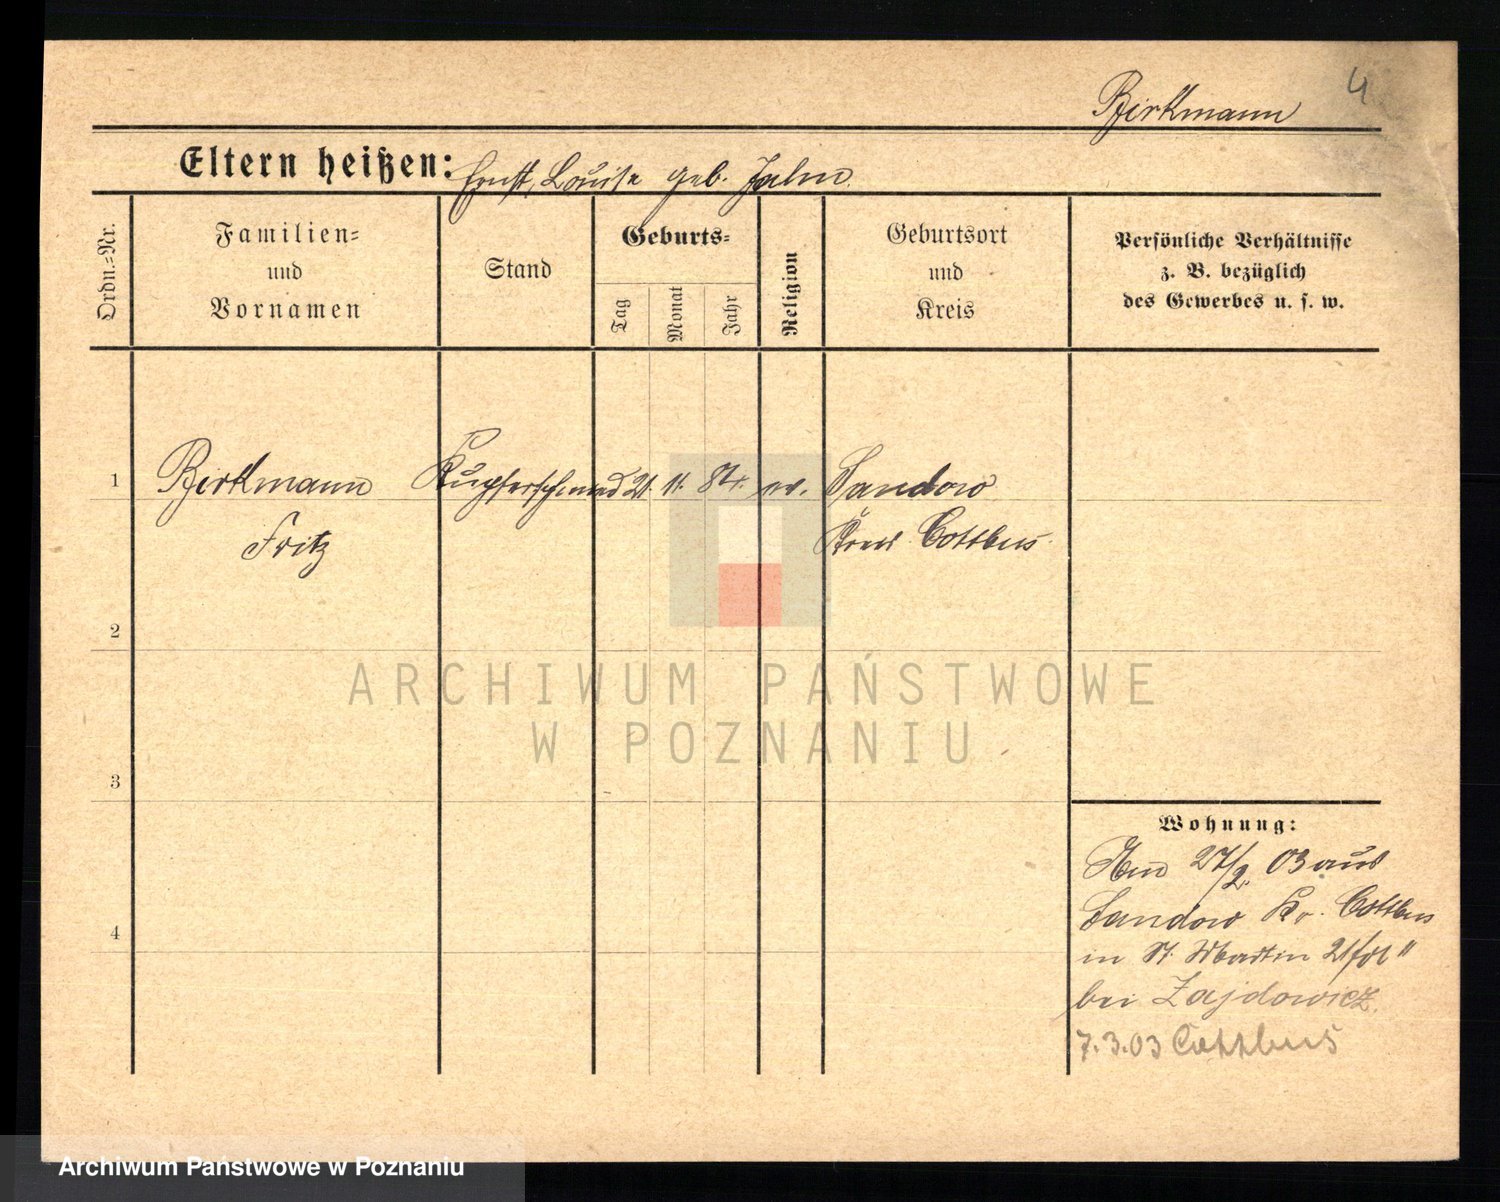 4
Birkmann
Eltern heißen: Ernst, Louise geb. Jahn.
Ordn.-Nr.
Familien-
und
Vornamen
Stand
Geburts-
Tag
Monat
Jahr
Religion
Geburtsort
und
Kreis
Persönliche Verhältnisse
z. B. bezüglich
des Gewerbes u. s. w.
1 Birkmann Kupferschmied 21. 11. 84. ev. Sandow
Fritz Kreis Cottbus.
2
3
4
Wohnung:
Am 27/2. 03 aus
Sandow Kr. Cottbus
in St. Martin
bei Zajdowicz.
7.3.03 Cottbus
ARCHIWUM PAŃSTWOWE
W POZNANIU
Archiwum Państwowe w Poznaniu